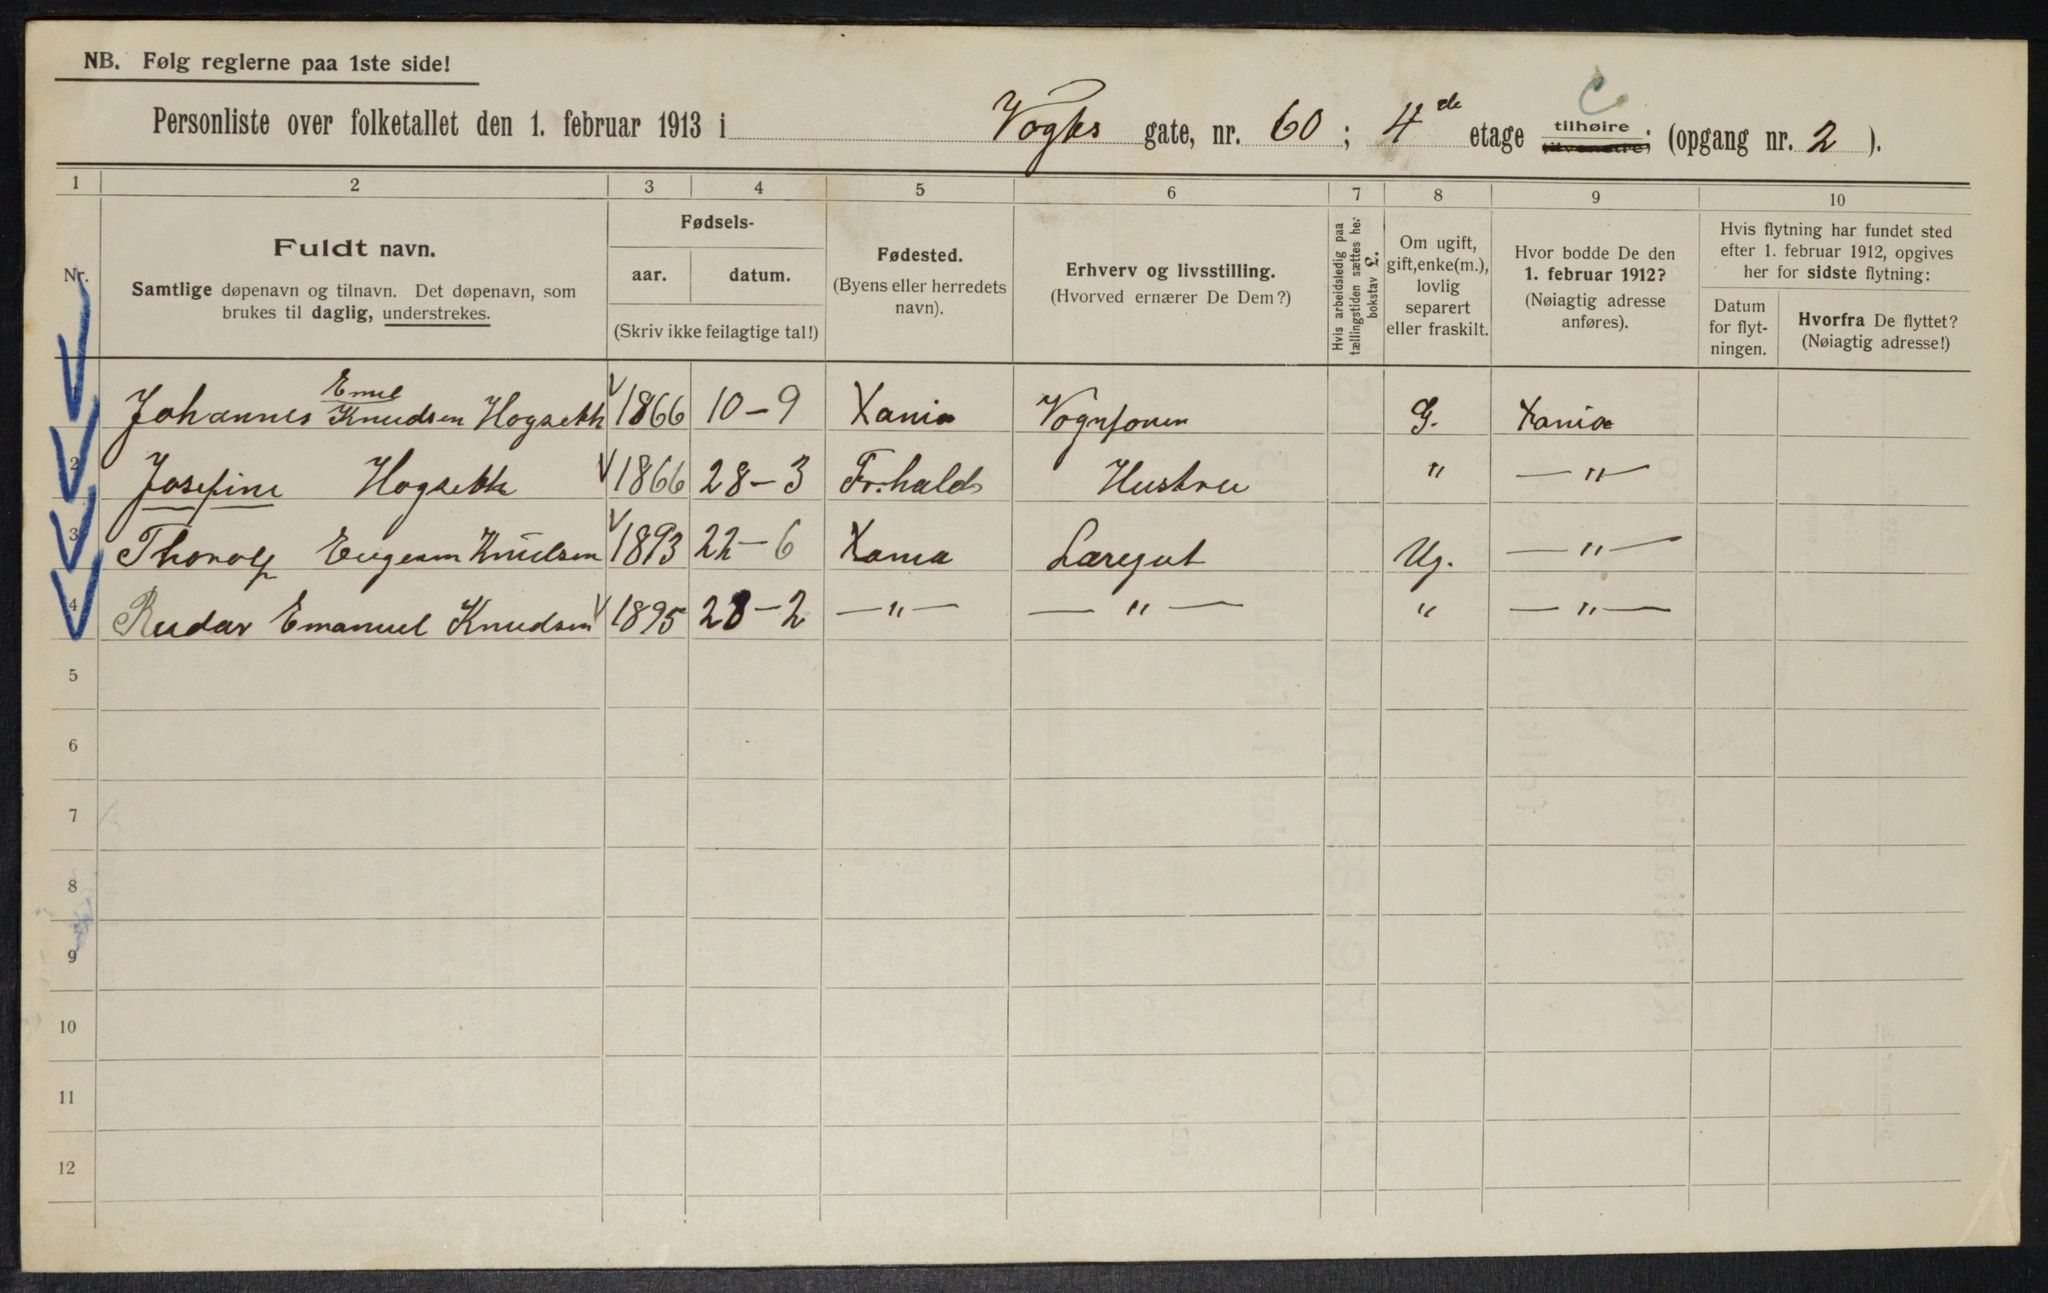 NB. Følg reglerne paa 1ste side!
C
Personliste over folketallet den 1. februar 1913 i Vogts gate, nr. 60; 4de etage tilhøire. tilvenstre) (opgang nr. 2).
1 2 3 4 5 6 7 8 9 10
Nr.
Fuldt navn.
Samtlige døpenavn og tilnavn. Det døpenavn, som
brukes til daglig, understrekes.
Fødsels-
aar. datum.
(Skriv ikke feilagtige tal!)
Fødested.
(Byens eller herredets
navn).
Erhverv og livsstilling.
(Hvorved ernærer De Dem?)
Hvis arbeidsledig paa
tællingstiden sættes her
bokstav L.
Om ugift,
gift, enke(m.),
lovlig
separert
eller fraskilt.
Hvor bodde De den
1. februar 1912?
(Nøiagtig adresse
anføres).
Hvis flytning har fundet sted
efter 1. februar 1912, opgives
her for sidste flytning:
Datum
for flyt-
ningen.
Hvorfra De flyttet?
(Nøiagtig adresse!)
Emil
Johannes Knudsen Hogseth 1866 10-9 Xania Vognfører G. Xania
2 Josefine Hogseth 1866 28-3 Fr.hald Hustru " — " —
3 Thorolf Eugen Knudsen 1893 22-6 Xania Læregut Ug. — " —
4 Reidar Emanuel Knudsen 1895 28-2 — " — — " — " — " —
5
6
7
8
9
10
11
12